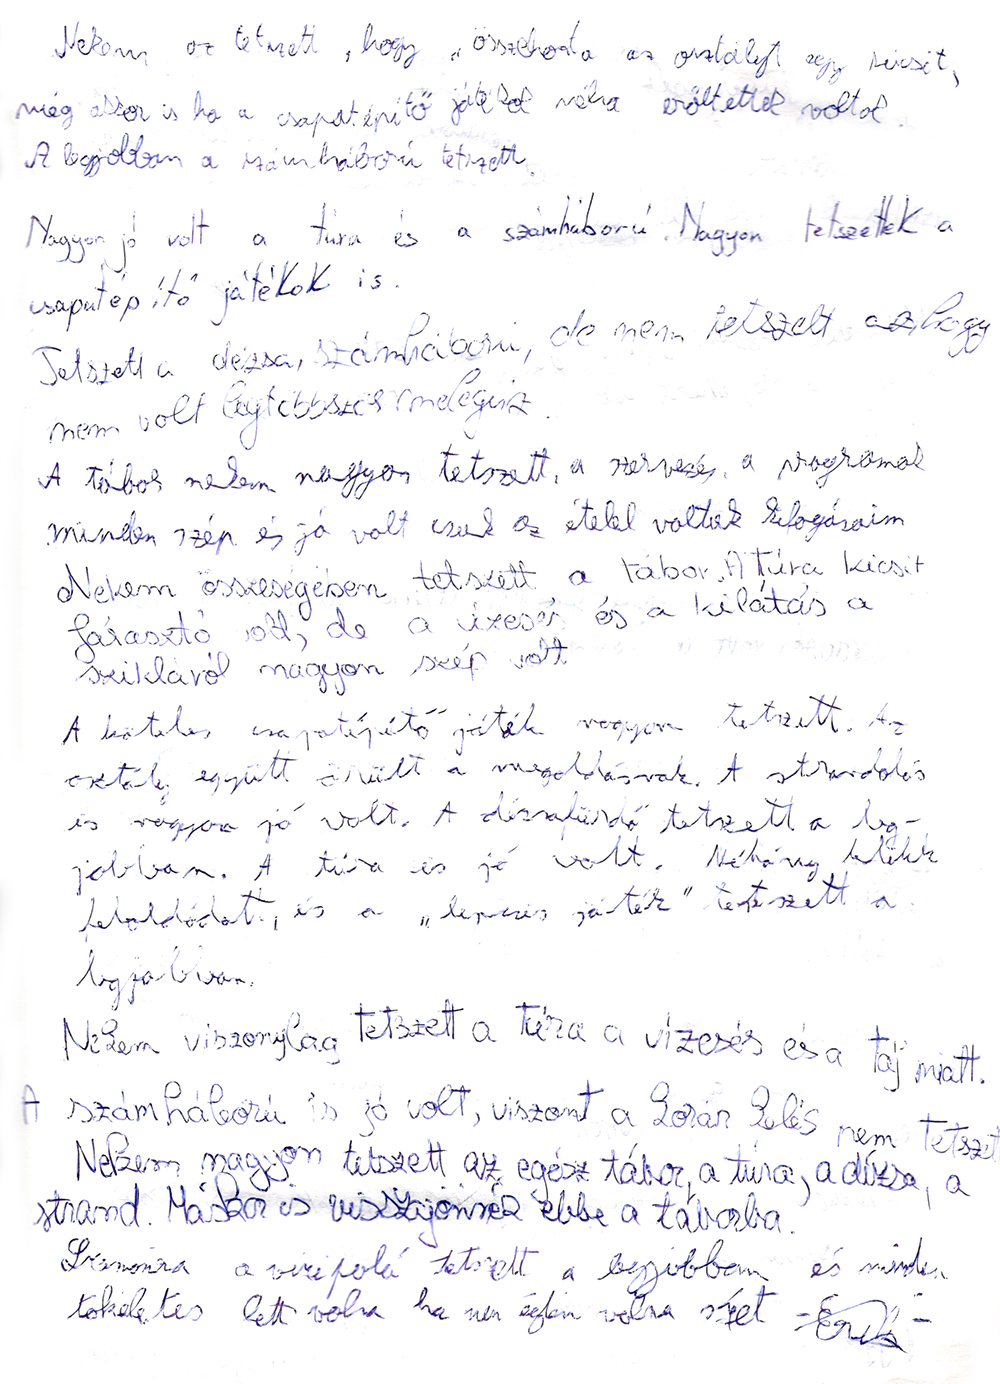 Nekem az tetszett, hogy összehozta az osztályt egy kicsit,
még akkor is ha a csapatépítő játékok néha erőltettek voltak.
A legjobban a számháború tetszett.
Nagyon jó volt a túra és a számháború. Nagyon tetszettek a
csapatépítő játékok is.
Tetszett a dézsa, számháború, de nem tetszett az, hogy
nem volt legtöbbször melegvíz.
A tábor nekem nagyon tetszett, a szervezés, a programok
minden szép és jó volt csak az ételel voltak kifogásaim
Nekem összeségében tetszett a tábor. A túra kicsit
fárasztó volt, de a vízesés és a kilátás a
szikláról nagyon szép volt
A köteles csapatépítő játék nagyon tetszett. Az
osztály együtt örült a megoldásnak. A strandolás
is nagyon jó volt. A dézsafürdő tetszett a leg-
jobban. A túra is jó volt. Néhány klikk
feloldódott, és a „lepcsis játék" tetszett a
legjobban.
Nekem viszonylag tetszett a túra a vízesés és a táj miatt.
A számháború is jó volt, viszont a korán kelés nem tetszett
Nekem nagyon tetszett az egész tábor, a túra, a dézsa, a
strand. Máskor is visszajönnék ebbe a táborba.
Számomra a vizipóló tetszett a legjobban és minden
tökéletes lett volna ha nem égtem volna szét